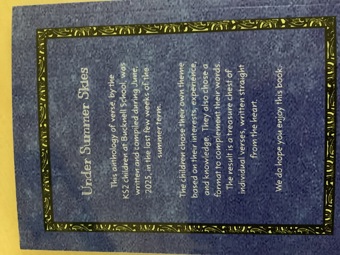 Under Summer Skies
This anthology of verse, by the
KS2 children at Bucknell School, was
written and compiled during June,
2025, in the last few weeks of the
summer term.
The children chose their own theme
based on their interests, experience,
and knowledge. They also chose a
format to complement their words.
The result is a treasure chest of
individual verses, written straight
from the heart.
We do hope you enjoy this book.